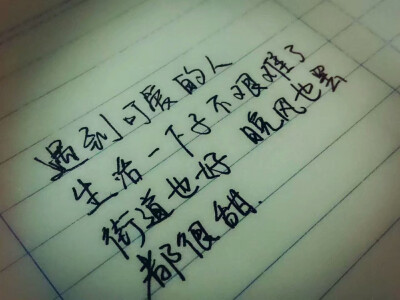 遇到可爱的人
生活一下子不艰难了
街道也好 晚风也罢
都很甜.